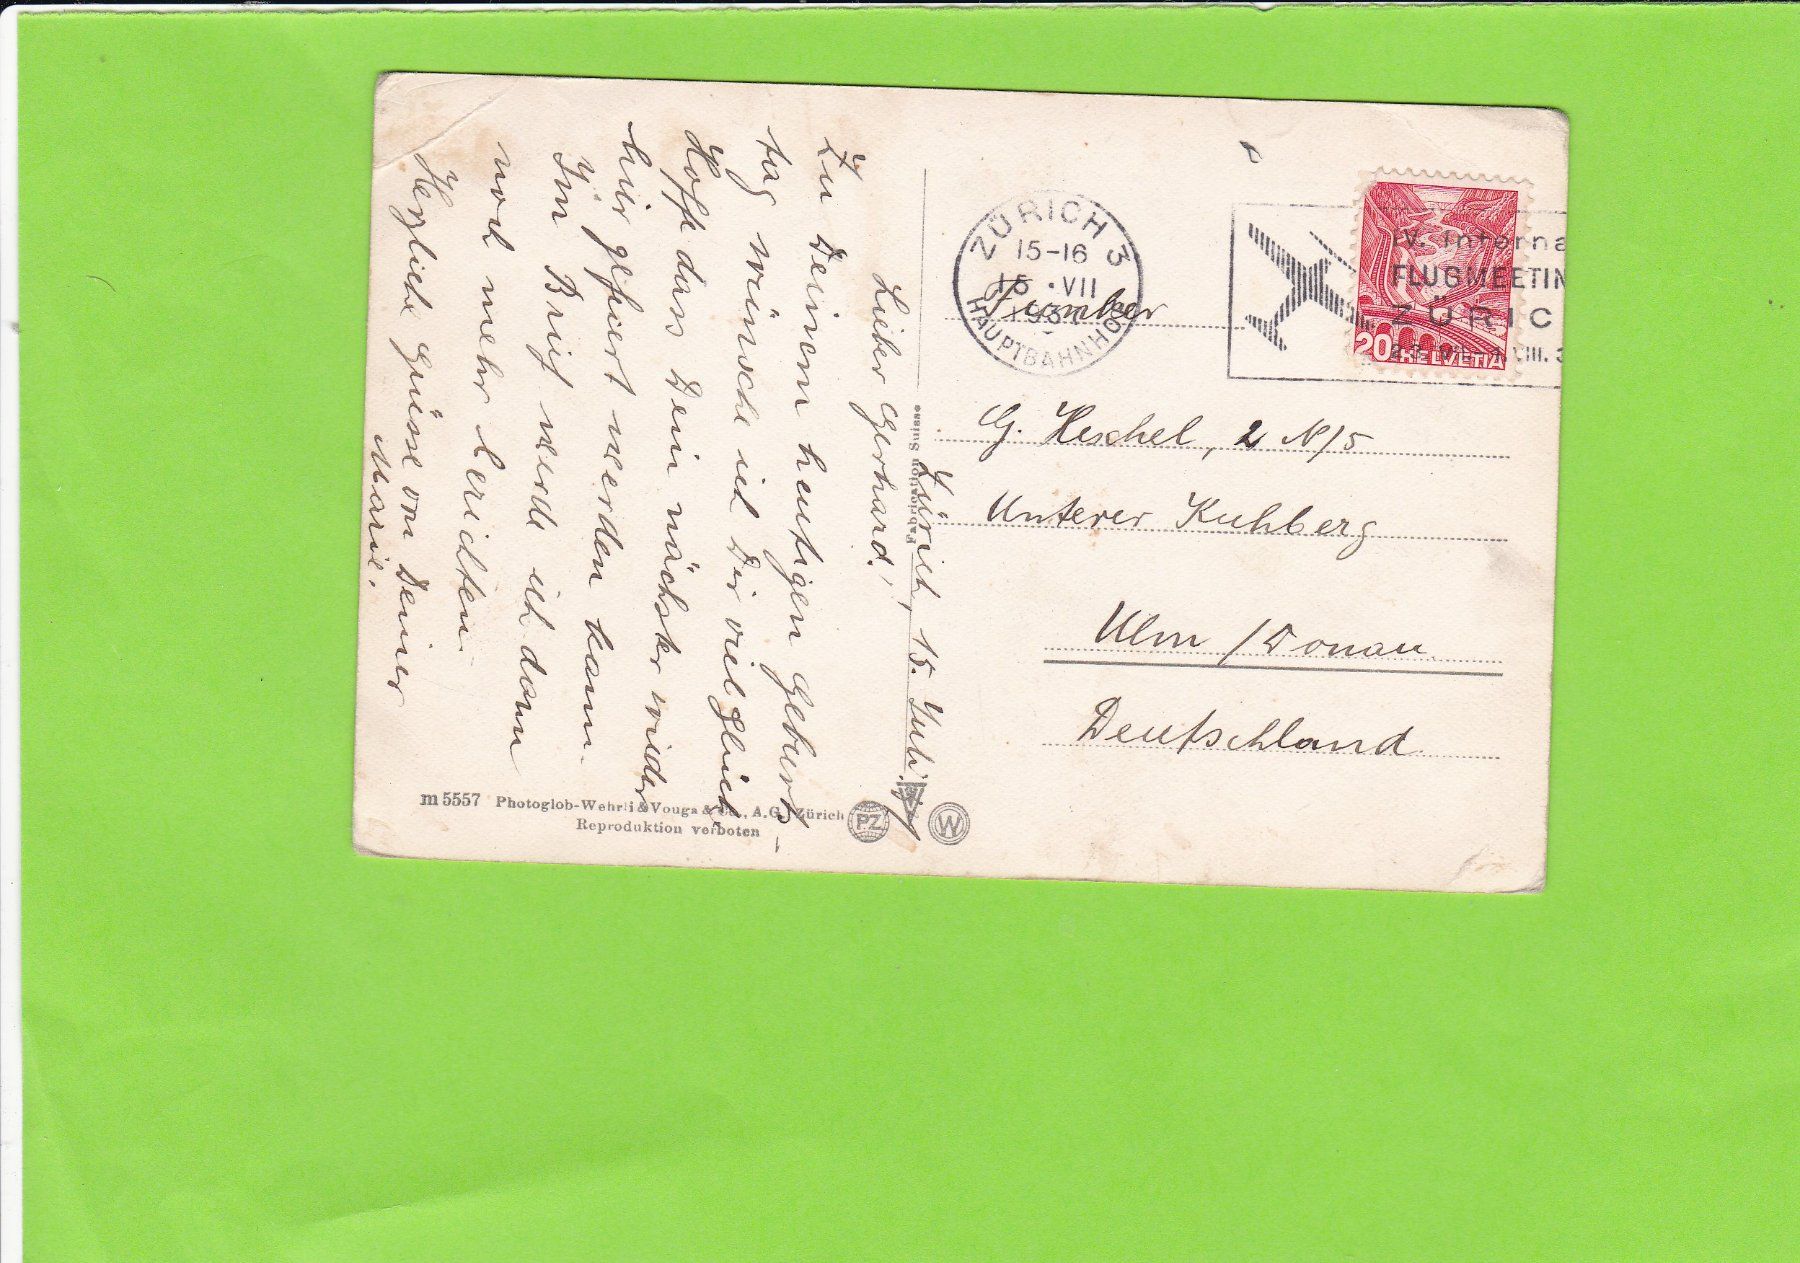 Zürich, 15. Juli 37
Lieber Gerhard!
Zu Deinem heutigen Geburts-
tag wünsche ich Dir viel Glück.
Hoffe dass Dein nächster wieder
hier gefeiert werden kann.
Im Brief werde ich dann
noch mehr berichten
Herzliche Grüsse von Deiner
Marie.
ZÜRICH 3
15-16
15.VII
HAUPTBAHNHOF
IV. Interna
FLUGMEETIN
ZÜRIC
20 HELVETIA
G. Heschel, 2 N/5
Unterer Kuhberg
Ulm / Donau
Deutschland
Fabrication Suisse
m 5557 Photoglob-Wehrli & Vouga & Co., A.G., Zürich
Reproduktion verboten
PZ
V
W